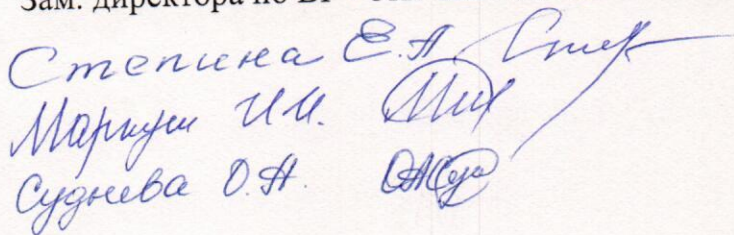 Зам. директора по ВР
Степина Е.А.
И.И.
Суднева О.А.